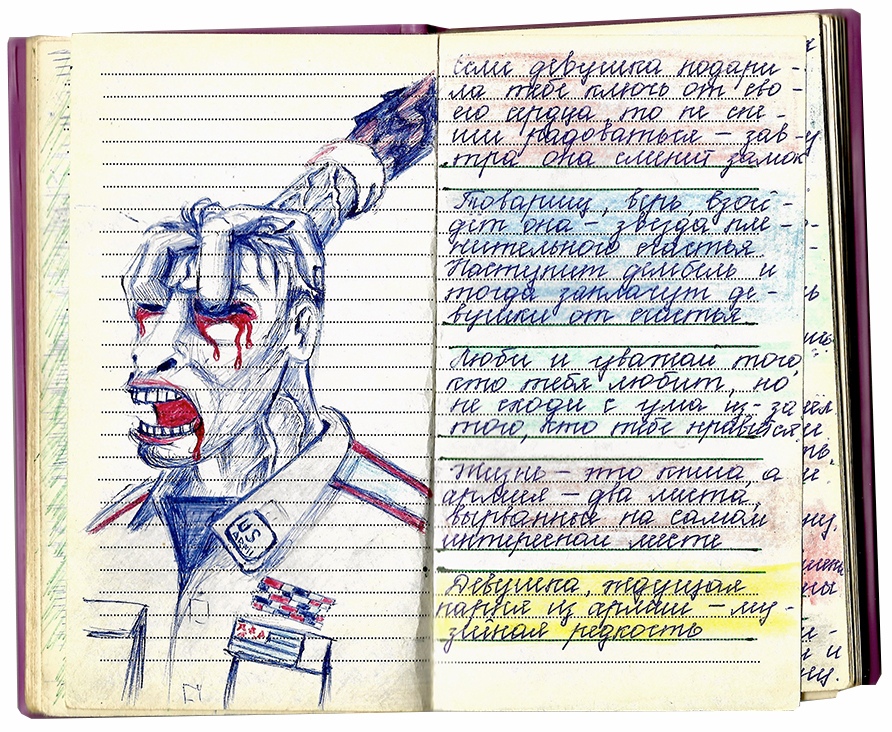 US
ARMY
Если девушка подари-
ла тебе ключ от сво-
его сердца, то не спе-
ши радоваться – зав-
тра она сменит замок
Товарищ, верь, взой-
дёт она – звезда пле-
нительного счастья
Наступит дембель и
тогда заплачут де-
вушки от счастья
Люби и уважай того,
кто тебя любит, но
не сходи с ума из-за
того, кто тебе нравится
Жизнь – это книга, а
армия – два листа,
вырванных на самом
интересном месте
Девушка, ждущая
парня из армии – му-
зейная редкость